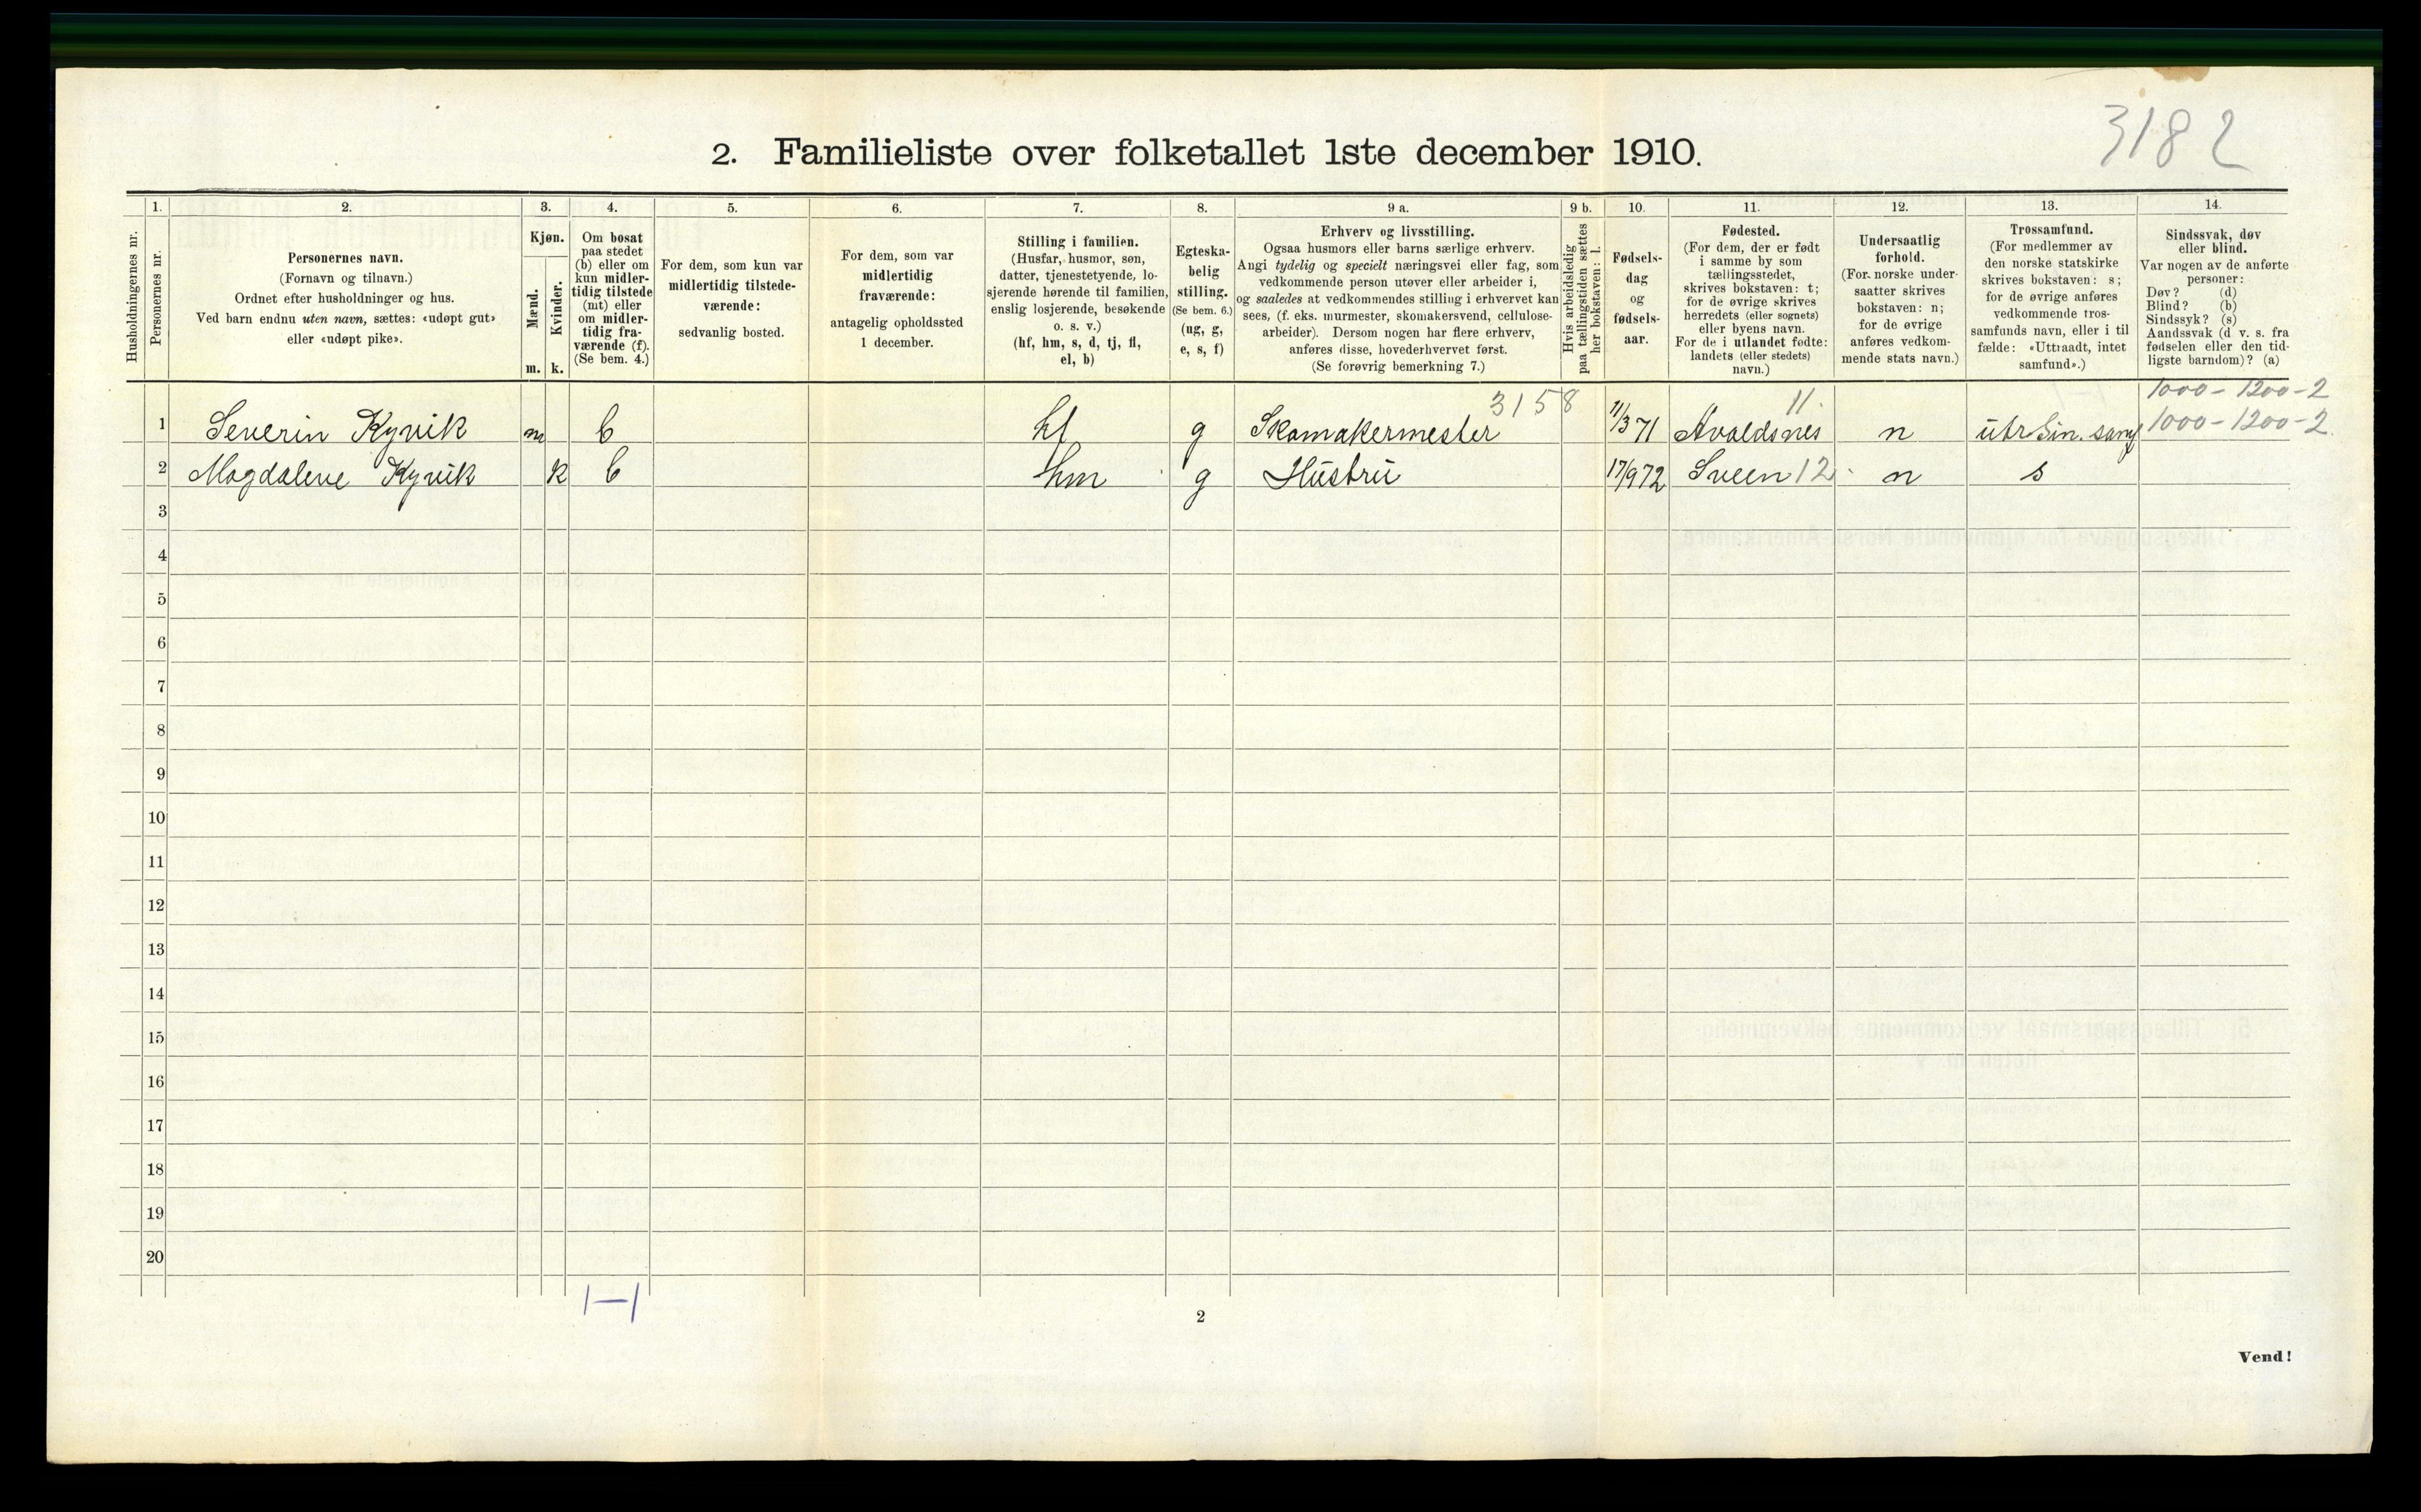 3182
2. Familieliste over folketallet 1ste december 1910.
Husholdningernes nr.
1.
Personernes nr.
2.
Personernes navn.
(Fornavn og tilnavn.)
Ordnet efter husholdninger og hus.
Ved barn endnu uten navn, sættes: «udøpt gut»
eller «udøpt pike».
3.
Kjøn.
Mænd.
Kvinder.
m. k.
4.
Om bosat
paa stedet
(b) eller om
kun midler-
tidig tilstede
(mt) eller
om midler-
tidig fra-
værende (f).
(Se bem. 4.)
5.
For dem, som kun var
midlertidig tilstede-
værende:
sedvanlig bosted.
6.
For dem, som var
midlertidig
fraværende:
antagelig opholdssted
1 december.
7.
Stilling i familien.
(Husfar, husmor, søn,
datter, tjenestetyende, lo-
sjerende hørende til familien,
enslig losjerende, besøkende
o. s. v.)
(hf, hm, s, d, tj, fl,
el, b)
8.
Egteska-
belig
stilling.
(Se bem. 6.)
(ug, g,
e, s, f)
9 a.
Erhverv og livsstilling.
Ogsaa husmors eller barns særlige erhverv.
Angi tydelig og specielt næringsvei eller fag, som
vedkommende person utøver eller arbeider i,
og saaledes at vedkommendes stilling i erhvervet kan
sees, (f. eks. murmester, skomakersvend, cellulose-
arbeider). Dersom nogen har flere erhverv,
anføres disse, hovederhvervet først.
(Se forøvrig bemerkning 7.)
9 b.
Hvis arbeidsledig
paa tællingstiden sættes
her bokstaven: l.
10.
Fødsels-
dag
og
fødsels-
aar.
11.
Fødested.
(For dem, der er født
i samme by som
tællingsstedet,
skrives bokstaven: t;
for de øvrige skrives
herredets (eller sognets)
eller byens navn.
For de i utlandet fødte:
landets (eller stedets)
navn.)
12.
Undersaatlig
forhold.
(For norske under-
saatter skrives
bokstaven: n;
for de øvrige
anføres vedkom-
mende stats navn.)
13.
Trossamfund.
(For medlemmer av
den norske statskirke
skrives bokstaven: s;
for de øvrige anføres
vedkommende tros-
samfunds navn, eller i til
fælde: «Uttraadt, intet
samfund».)
14.
Sindssvak, døv
eller blind.
Var nogen av de anførte
personer:
Døv? (d)
Blind? (b)
Sindssyk? (s)
Aandssvak (d. v. s. fra
fødselen eller den tid-
ligste barndom)? (a)
3158 11. 1000-1200-2
1 Severin Kyvik m b hf g Skomakermester 11/3 71 Avaldsnes n 1000-1200-2
2 Magdalene Kyvik k b hm g Hustru 17/9 72 Sveen 12 n s
3
4
5
6
7
8
9
10
11
12
13
14
15
16
17
18
19
20
1-1
2
Vend!